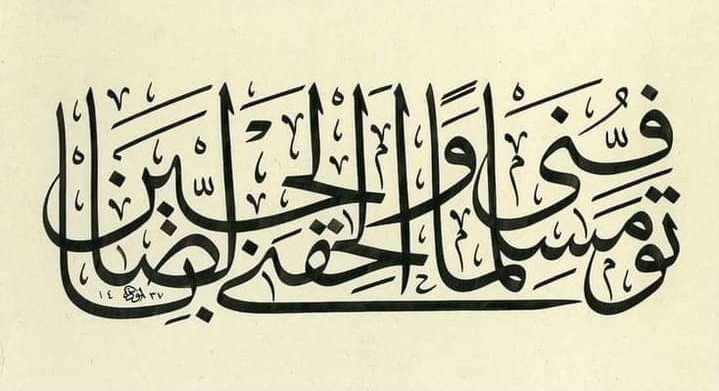 توفني مسلما وألحقني بالصالحين
١٤٣٧